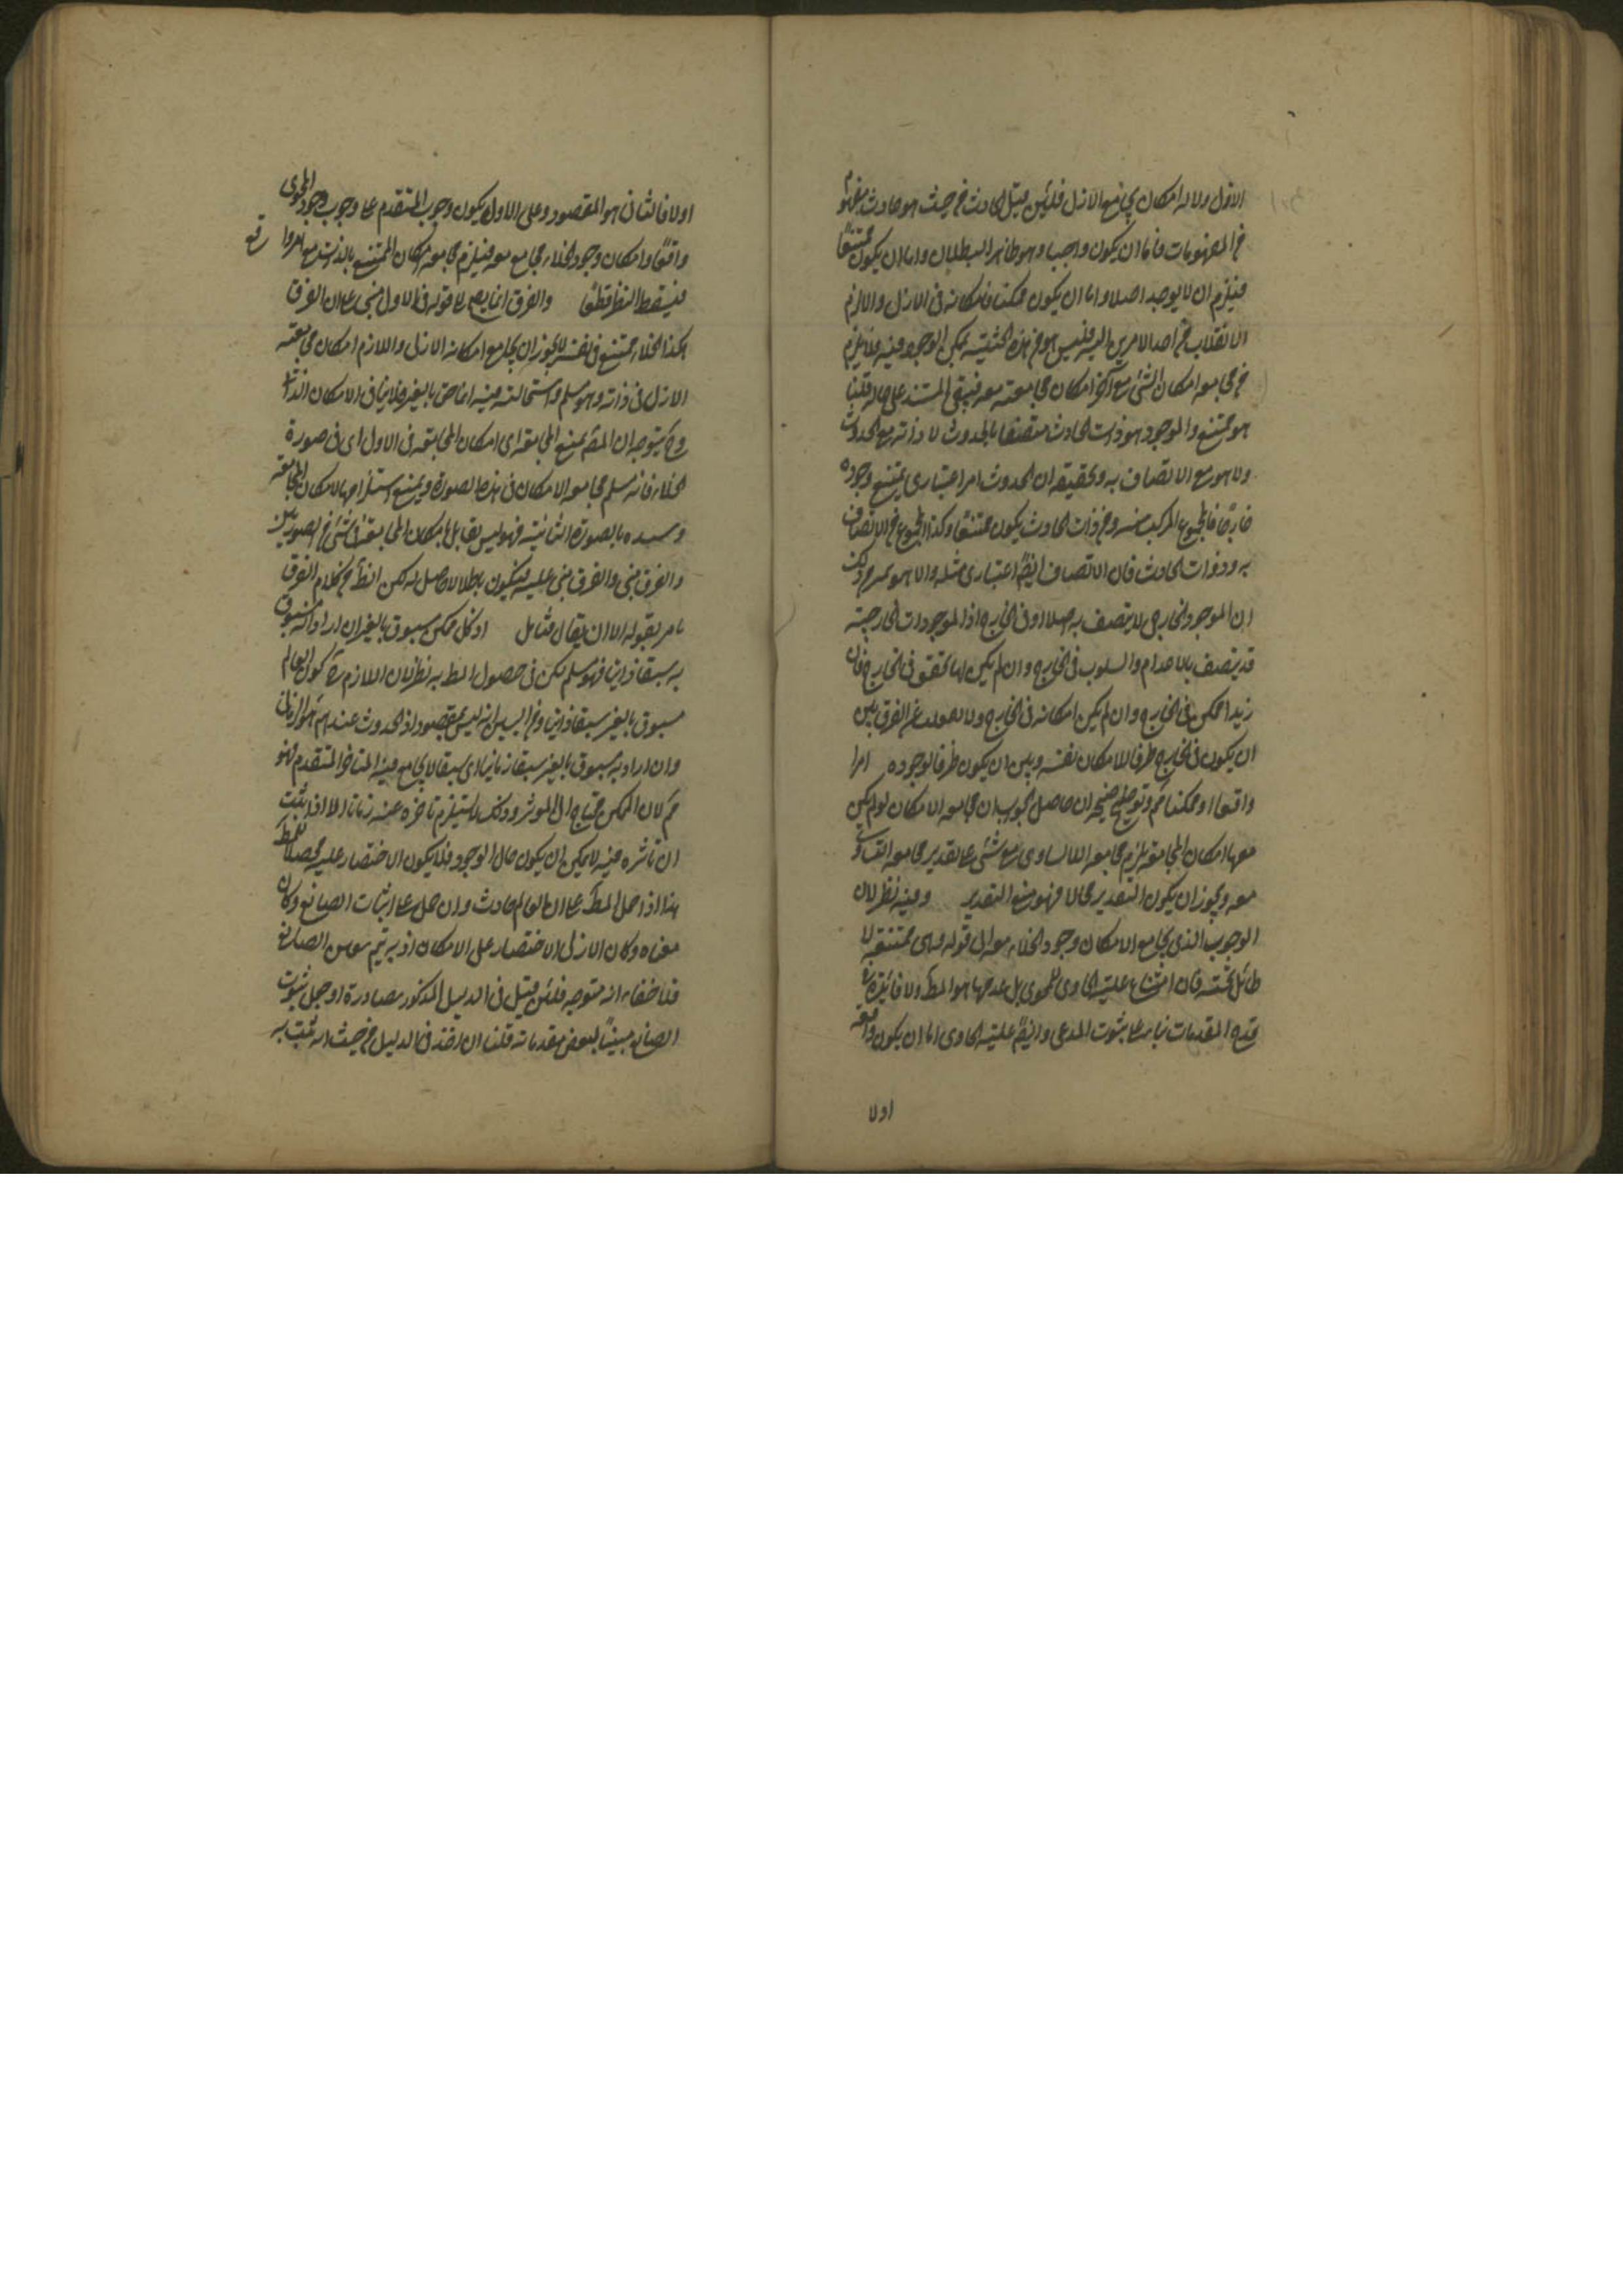 الاول ولا له امكان يجامع الازل فلئن قيل الحادث من حيث هو حادث مفهوم
من المفهومات فاما ان يكون واجبا وهو ظاهر البطلان واما ان يكون ممتنعًا
فيلزم ان لا يوجد اصلا واما ان يكون ممكنا فامكانه فى الازل والا لزم
الانقلاب من احد الامرين اليه فليس هو من هذه الحيثية ممكن الوجود فيه فلا يلزم
من مجامعه امكان الشئ مع آخر امكان مجامعته معه فيبقى المستند على حاله قلنا
هو ممتنع والموجود هو ذات الحادث متصفا بالحدوث لا ذاته مع الحدوث
ولا هو مع الاتصاف به وتحقيقه ان الحدوث امر اعتبارى يمتنع وجوده
خارجًا فالمجموع المركب منه ومن ذات الحادث يكون ممتنعًا وكذا المجموع من الاتصاف
به وذات الحادث فان الاتصاف ايضًا اعتبارى مثله والا هو
ان الموجود الخارجى لا يتصف به اصلا او فى الخارج اذ الموجودات الخارجية
قد يتصف بالاعدام والسلوب فى الخارج وان لم يكن لها تحقق فى الخارج فان
زيدا ممكن فى الخارج وان لم يكن امكانه فى الخارج ولا تغفلت عن الفرق بين
ان يكون الخارج ظرفا لامكان نفسه وبين ان يكون ظرفا لوجوده امرا
واقعا او ممكنا وتوضيحه ان حاصل الجواب ان مجامعه الامكان لو لم يكن
معها امكان المجامعة يلزم مجامعه اللاتساوى مع شئ على تقدير مجامعه التساوى
معه ويجوز ان يكون التقدير محالا فهو منع التقدير وفيه نظر لان
الوجوب الذى يجامع الامكان وجود الخلاء معه الى قوله وهى ممتنعة لا
طائل تحته فان امتناع علية الحاوى للمحوى بل عدمها هو المط ولا فائدة
قدح المقدمات بناء على ثبوت المدعى وايضًا علية الحاوى اما ان يكون واقعة
اولا
اولا فالثانى هو المقصود وعلى الاول يكون وجوب المتقدم على وجوب وجود المحوى
واقعًا وامكان وجود الخلاء مجامع معه فيلزم مجامعه امكان الممتنع بالذات مع امر واقع
فيسقط النظر قطعًا والفرق انما يصح لا قوله فى الاول مبنى على ان الفرق
هكذا الخلاء ممتنع فى نفسه لا يجوز ان يجامع امكانه الازل واللازم امكان مجامعته
الازل فى ذاته وهو مسلم واستحالته فيه انما هى بالغير فلا ينافى الامكان الذاتى
وح يتوجه ان المص يمنع المجامعة اى امكان المجامعة فى الاول اى فى صورة
الخلاء فانه سلم مجامعه الامكان فى هذه الصورة ويمنع استلزامها لامكان المجامعة
وسنده بالصورة الثانية فهو ليس بقابل بامكان المجامعة فى شئ من الصورتين
والفرق مبنى والفرق مبنى عليه فيكون باطلا لا حاصل له لكن الظ من كلام الفرق
يقال مقابل اذ كل ممكن مسبوق بالغير ان اراد انه مسبوق
به سبقا ذاتيا فهو مسلم لكن فى حصول المط به نظر لان اللازم ح كون العالم
مسبوق بالغير سبقا ذاتيا ومن البين انه ليس بمقصود اذ الحدوث عندهم هو الزمانى
وان اراد به مسبوق بالغير سبقا زمانيا اى سبقا لا يجامع فيه المتاخر المتقدم فهو
مم لان الممكن محتاج الى الموثر وذلك لا يستلزم تاخره عنه زمانا الا اذا ثبت
ان تاثيره فيه لا يمكن ان يكون حال الوجود فلا يكون الاختصار عليه محصلا للمط
هذا اذا حمل المط على ان العالم حادث وان حمل على اثبات الصانع وكان
معناه وكان الازل الاختصار على الامكان اذ به يتم الصانع
فلا خفاء انه متوجه فلئن قيل فى الدليل المذكور مصادرة او جعل ثبوت
الصانع مبينًا لبعض مقدماته قلنا ان اخذ فى الدليل من حيث انه ثبت به